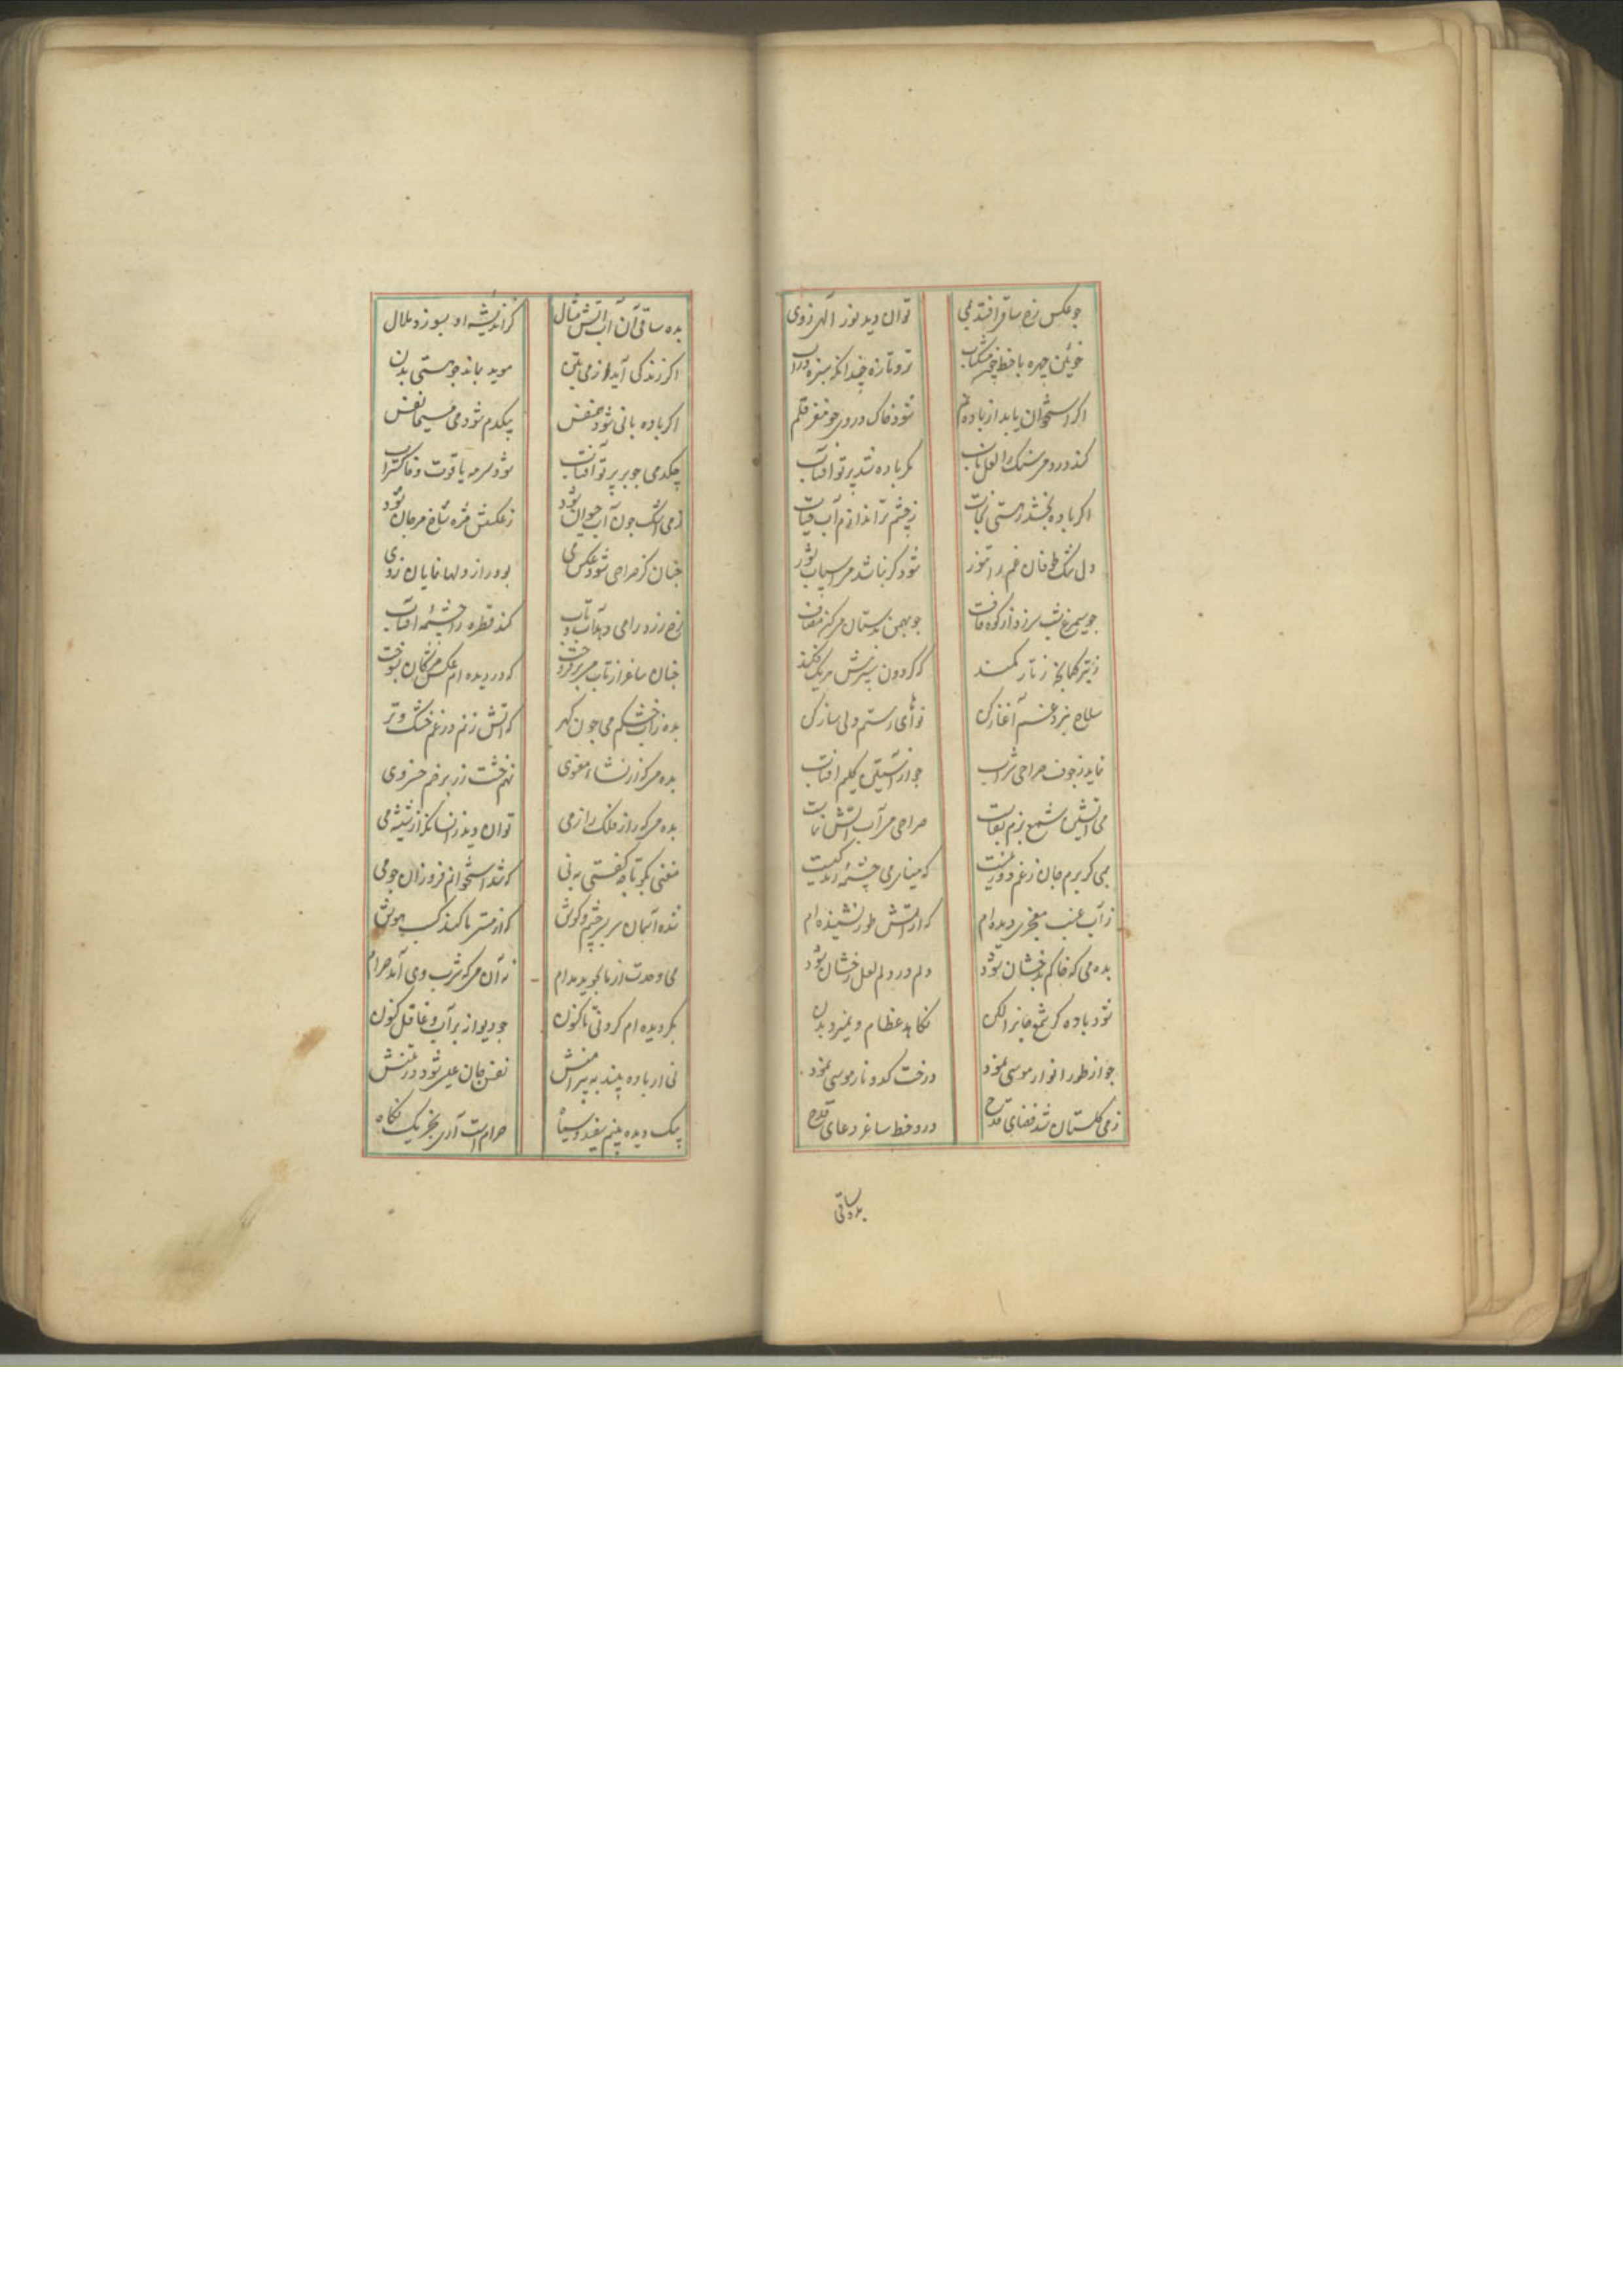 جو عکس رخ ساقی افتد بمی توان دید نور الهی ز وی
خوی این چهره با خط چون مشکناب تر و تازه چندانکه سبزه در آب
اکر استخوان یابد از باده نم شود خاک در وی چو مغز قلم
کند درد می سنک را لعل ناب مکر باده شد پرتو آفتاب
اکر باده بخشد ز هستی نجات ز چشم تر اندازم آب حیات
دل تنک طوفان غم را تنور شود کر نباشد می اسباب شور
چو سیمرغ شب سر زد از کوه قاف چو بهمن بدستان می کن مصاف
سلاح نبرد غم آغاز کن نوای رستم ولی ساز کن
نماید ز جوف صراحی شراب چو از آستین کلیم آفتاب
می آتشین شمع بزم بقاست صراحی می آب آتش نماست
می کز برم جان ز غم دور زیست که مینای می چشمه زندکیست
ز آب عنب معجزی دیده ام که از آتش طور نشنیده ام
بده می که خاکم بدخشان شود دلم در دلم لعل رخشان شود
شود باده کر شمع جانرا لکن نکاهد عظام و نمیرد بدن
چو از طور انوار موسی نمود درخت کدو نار موسی نمود
ز می کلستان شد فضای قدح درد خط ساغر دعای قدح
بده ساقی
بده ساقی آن آب آتش مثال کز اندیشه او بسوزد ملال
اکر زندکی آید از می بتن موید بماند چو هستی بدن
اکر باده بانی شود همنفس بیکدم شود می مسیحا نفس
چکد می چو بر پرتو آفتاب شود سرمه یاقوت و خاکستر آب
ز می اشک چون آب حیوان شود ز عکسش مژه شاخ مرجان شود
چنان کز صراحی شود عکس می بود راز دلها نمایان ز وی
رخ زرد را می دهد آب و تاب کند قطره را چشمه آفتاب
چنان ساغر از تاب می برفروخت که در دیده ام عکس مژکان بسوخت
بده زآب خشکم می چون کهر که آتش زنم در غم خشک و تر
بده می که از نشاء معنوی نهم خشت زر بر خم خسروی
بده می که راز فلک را ز می توان دید زانسانکه از شیشه می
مغنی بکو تا چه کفتی به نی که شد استخوانم فروزان چو می
شده آسمان سر بسر چشم و کوش که از مستی ما کند کسب هوش
می وحدت از ما بجوید مدام نه آن می که شرب وی آمد حرام
بکر دیده ام کردشی تاکنون
نی ار باده بیند به پیرامنش نفس جان علی شود در تنش
بیک دیده بینم سفید و سیاه حرام است آری بجز یک نکاه